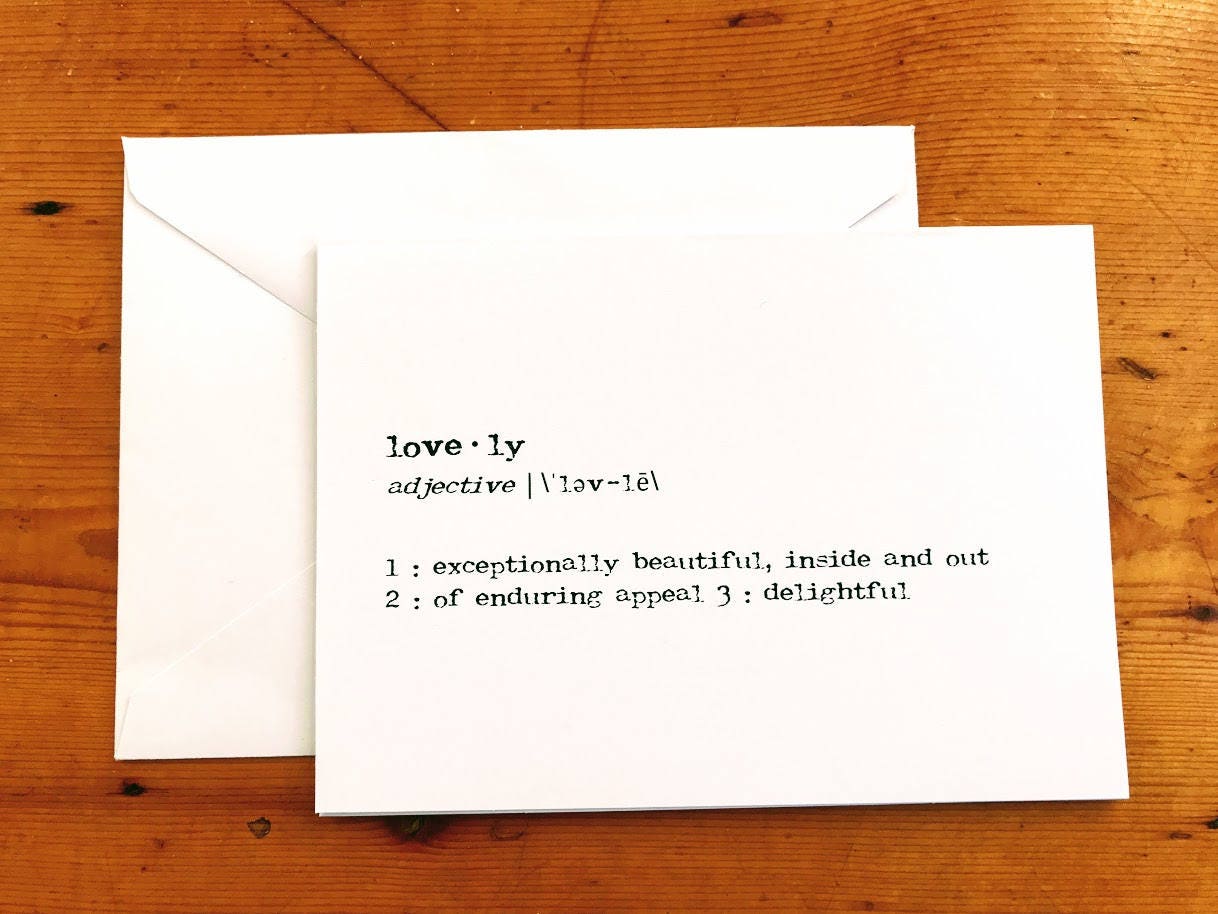 love·ly
adjective | \ˈləv-lē\
1 : exceptionally beautiful, inside and out
2 : of enduring appeal 3 : delightful